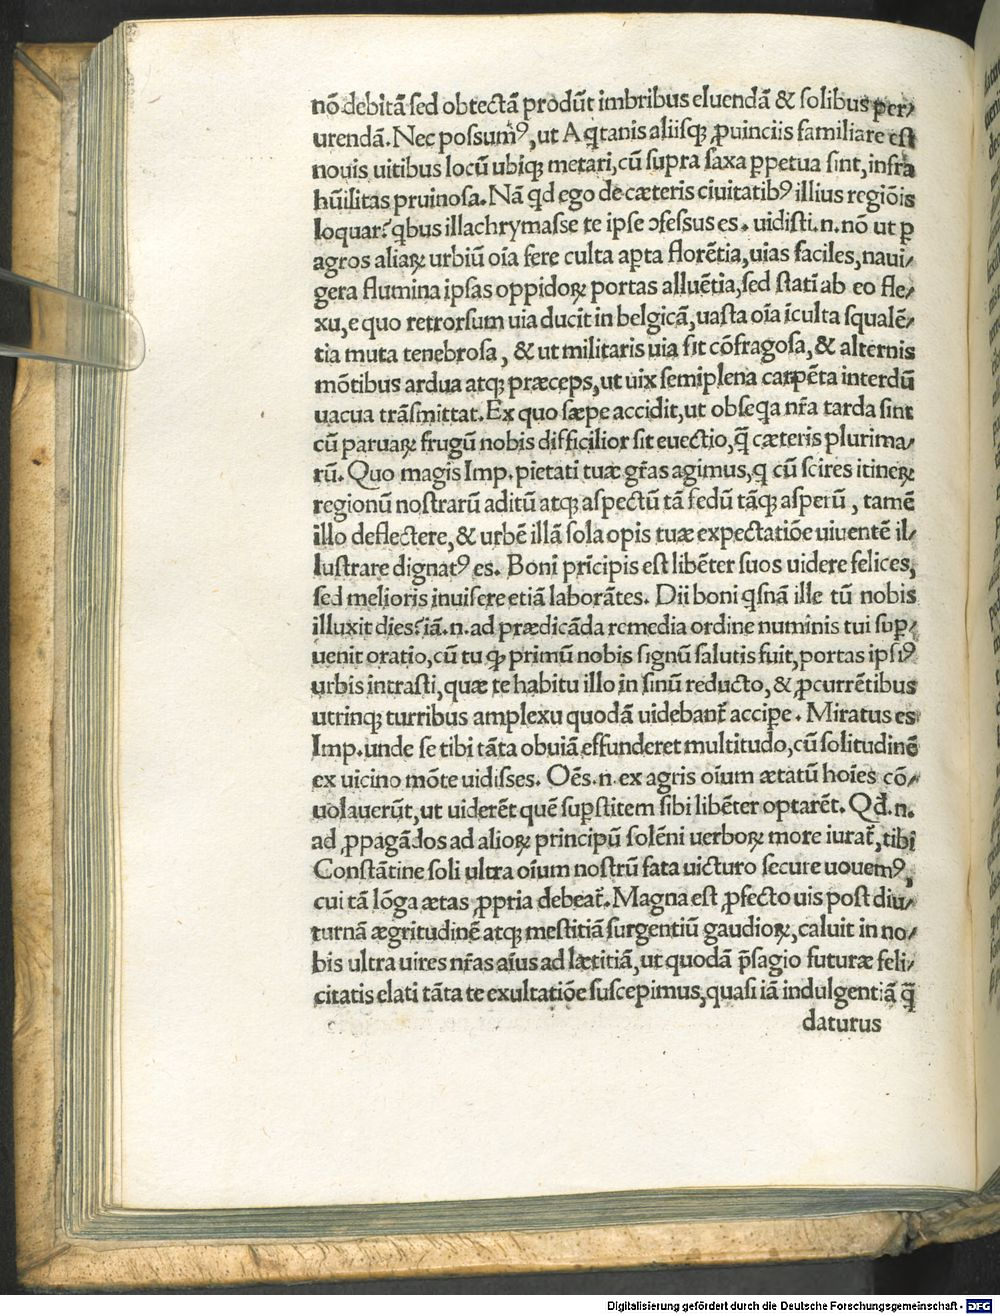 nō debitā sed obtectā prodūt imbribus eluendā & solibus per⸗
urendā. Nec possumꝰ, ut Aq̄tanis aliisqꝫ ꝓuinciis familiare est
nouis uitibus locū ubiqꝫ metari, cū supra saxa ꝑpetua sint, infra
hūilitas pruinosa. Nā qd ego de cæteris ciuitatibꝰ illius regiōis
loquar? qbus illachrymasse te ipse ↄfessus es. uidisti.n. nō ut ꝑ
agros aliaꝝ urbiū oīa fere culta apta florētia, uias faciles, naui⸗
gera flumina ipsas oppidoꝝ portas alluētia, sed statī ab eo fle⸗
xu, e quo retrorsum uia ducit in belgicā, uasta oīa īculta squalē⸗
tia muta tenebrosa, & ut militaris uia sit cōfragosa, & alternis
mōtibus ardua atqꝫ præceps, ut uix semiplena carpēta interdū
uacua trāsmittat. Ex quo sæpe accidit, ut obseqa nr̄a tarda sint
cū paruaꝝ frugū nobis difficilior sit euectio, q̄ cæteris plurima⸗
rū. Quo magis Imp. pietati tuæ gr̄as agimus, q cū scires itineꝝ
regionū nostrarū aditū atqꝫ aspectū tā fedū tāqꝫ asperū, tamē
illo deflectere, & urbē illā sola opis tuæ expectatiōe uiuentē il⸗
lustrare dignatꝰ es. Boni prīcipis est libēter suos uidere felices,
sed melioris inuisere etiā laborātes. Dii boni qsnā ille tū nobis
illuxit dies? iā.n. ad prædicāda remedia ordine numinis tui suꝑ⸗
uenit oratio, cū tu qꝫ primū nobis signū salutis fuit, portas ipsiꝰ
urbis intrasti, quæ te habitu illo in sinū reducto, & ꝓcurrētibus
utrinqꝫ turribus amplexu quodā uidebant̄ acciꝑe. Miratus es
Imp. unde se tibi tāta obuiā effunderet multitudo, cū solitudinē
ex uicino mōte uidisses. Oēs.n. ex agris oīum ætatū hoīes cō⸗
uolauerūt, ut uiderēt quē suꝑstitem sibi libēter optarēt. Qd.n.
ad ꝓpagādos ad alioꝝ principū solēni uerboꝝ more iurat̄, tibi
Constātine soli ultra oīum nostrū fata uicturo secure uouemꝰ,
cui tā lōga ætas ꝓpria debeat̄. Magna est ꝓfecto uis post diu⸗
turnā ægritudinē atqꝫ mestitiā surgentiū gaudioꝝ, caluit in no⸗
bis ultra uires nr̄as aīus ad lætitiā, ut quodā p̄sagio futuræ feli⸗
citatis elati tāta te exultatiōe suscepimus, quasi iā indulgentiā q̄
daturus
Digitalisierung gefördert durch die Deutsche Forschungsgemeinschaft - DFG